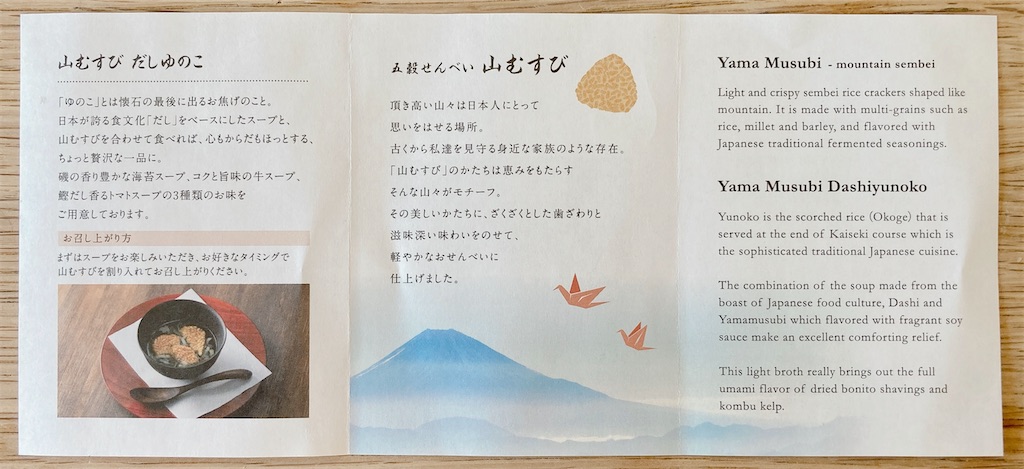 山むすび だしゆのこ
「ゆのこ」とは懐石の最後に出るお焦げのこと。
日本が誇る食文化「だし」をベースにしたスープと、
山むすびを合わせて食べれば、心もからだもほっとする、
ちょっと贅沢な一品に。
磯の香り豊かな海苔スープ、コクと旨味の牛スープ、
鰹だし香るトマトスープの3種類のお味を
ご用意しております。
お召し上がり方
まずはスープをお楽しみいただき、お好きなタイミングで
山むすびを割り入れてお召し上がりください。
五穀せんべい 山むすび
頂き高い山々は日本人にとって
思いをはせる場所。
古くから私達を見守る身近な家族のような存在。
「山むすび」のかたちは恵みをもたらす
そんな山々がモチーフ。
その美しいかたちに、ざくざくとした歯ざわりと
滋味深い味わいをのせて、
軽やかなおせんべいに
仕上げました。
Yama Musubi - mountain sembei
Light and crispy sembei rice crackers shaped like
mountain. It is made with multi-grains such as
rice, millet and barley, and flavored with
Japanese traditional fermented seasonings.
Yama Musubi Dashiyunoko
Yunoko is the scorched rice (Okoge) that is
served at the end of Kaiseki course which is
the sophisticated traditional Japanese cuisine.
The combination of the soup made from the
boast of Japanese food culture, Dashi and
Yamamusubi which flavored with fragrant soy
sauce make an excellent comforting relief.
This light broth really brings out the full
umami flavor of dried bonito shavings and
kombu kelp.